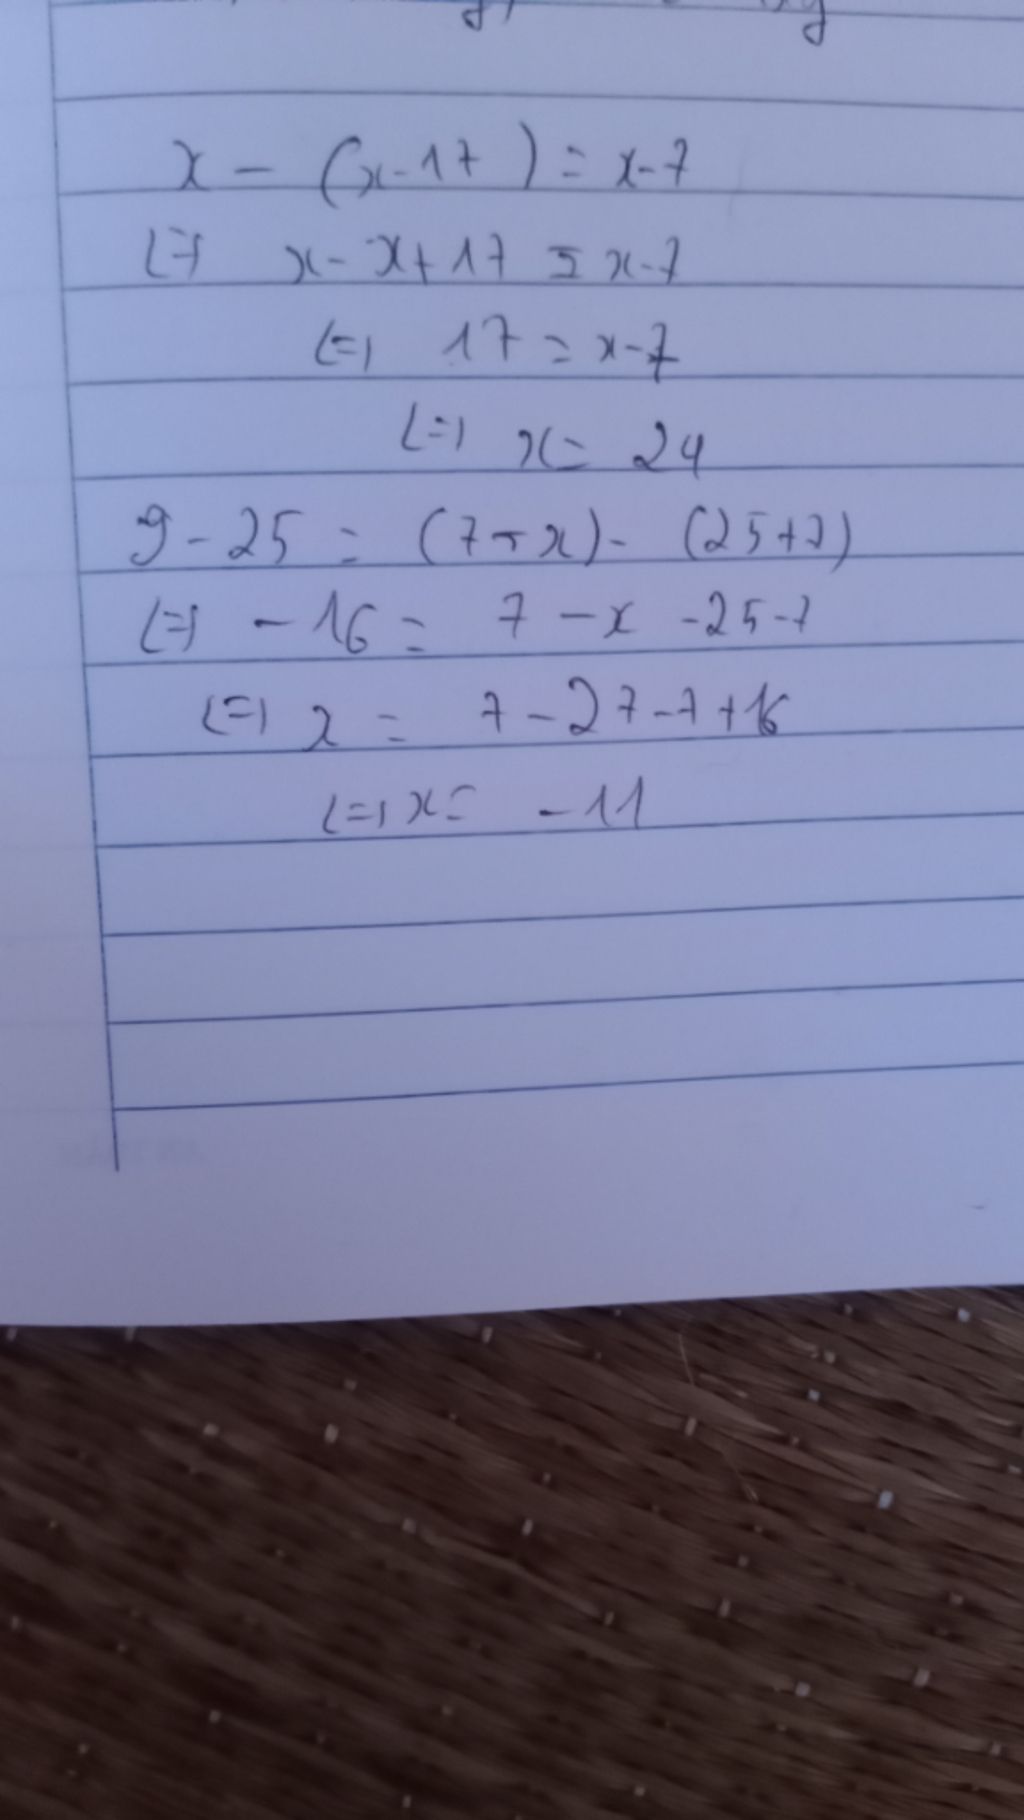 x - (x-17) = x-7
<=> x - x + 17 = x-7
<=> 17 = x-7
<=> x = 24
9 - 25 = (7-x) - (25+7)
<=> -16 = 7 - x - 25 - 7
<=> x = 7 - 27 - 7 + 16
<=> x = -11